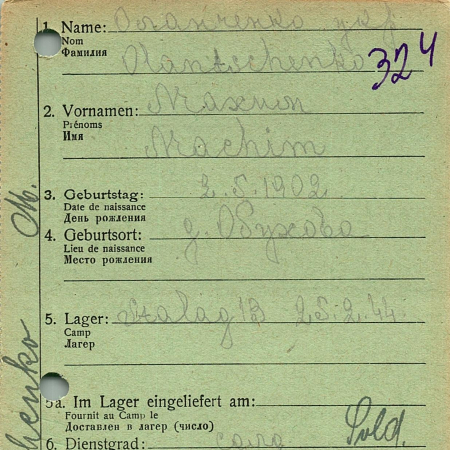 1. Name:
Nom
Фамилия
324
2. Vornamen:
Prénoms
Имя
Machim
3. Geburtstag: 2.5.1902
Date de naissance
День рождения
4. Geburtsort: д. Обухово
Lieu de naissance
Место рождения
5. Lager: Stalag 13 25.2.44.
Camp
Лагерь
5a. Im Lager eingeliefert am:
Fournit au Camp le
Доставлен в лагерь (число)
6. Dienstgrad: Sold.
henko M.